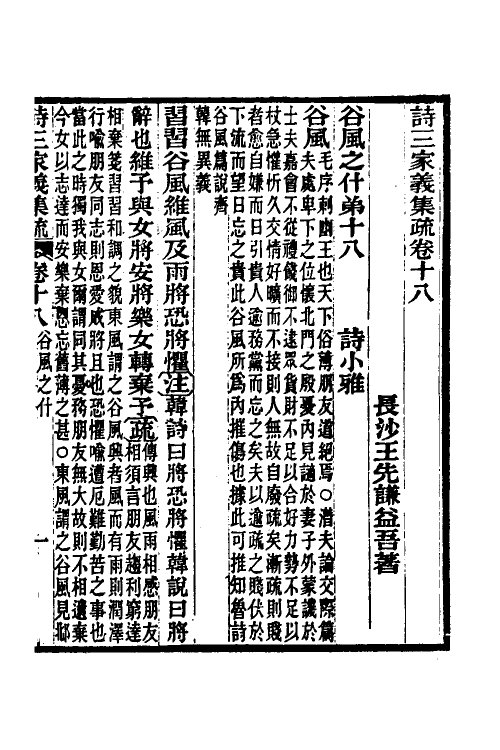 詩三家義集疏卷十八
長沙王先謙益吾著
谷風之什弟十八　詩小雅
谷風毛序刺幽王也天下俗薄朋友道絕焉○潛夫論交際篇
夫處卑下之位懷北門之殷憂內見謫於妻子外蒙譏於
士夫嘉會不從禮餞御不逮眾貨財不足以合好力勢不足以
杖急懽忻久交情好曠而不接則人無故自廢疏矣漸疏則賤
者愈自嫌而日引貴人逾務黨而忘之矣夫以逾疏之賤伏於
下流而望日忘之貴此谷風所爲內摧傷也據此可推知魯詩
谷風篇說齊
韓無異義
習習谷風維風及雨將恐將懼注韓詩曰將恐將懼韓說曰將
辭也維予與女將安將樂女轉棄予疏傳興也風雨相感朋友
相須言朋友趨利窮達
相棄箋習習和調之貌東風謂之谷風興者風而有雨則潤澤
行喻朋友同志則恩愛成將且也恐懼喻遭厄難勤苦之事也
當此之時獨我與女爾謂同其憂務朋友無大故則不相遺棄
今女以志達而安樂棄恩忘舊薄之甚○東風謂之谷風見邶
詩三家義集疏　卷十八谷風之什　一